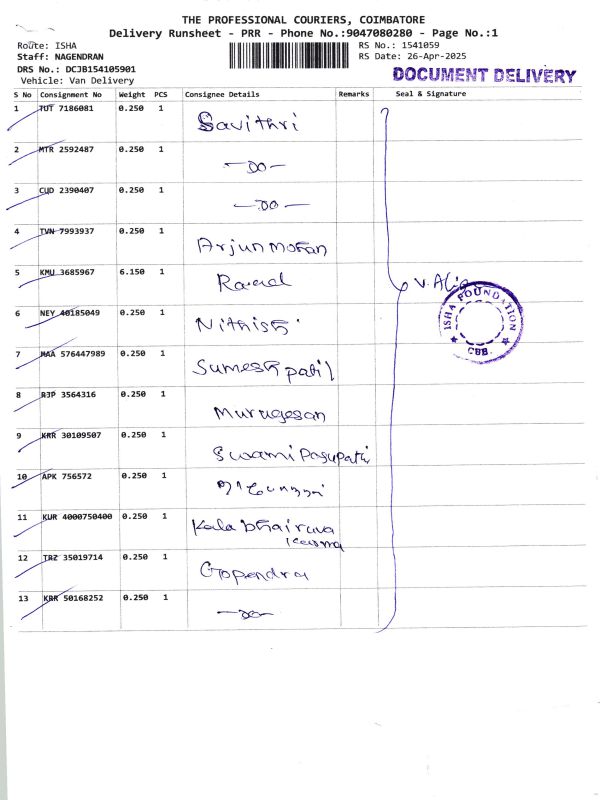 THE PROFESSIONAL COURIERS, COIMBATORE
Delivery Runsheet - PRR - Phone No.:9047080280 - Page No.:1
Route: ISHA
Staff: NAGENDRAN
DRS No.: DCJB154105901
Vehicle: Van Delivery
RS No.: 1541059
RS Date: 26-Apr-2025
DOCUMENT DELIVERY
S No Consignment No Weight PCS Consignee Details Remarks Seal & Signature
1 TUT 7186081 0.250 1 Savithri
2 MTR 2592487 0.250 1 -DO-
3 CUD 2390407 0.250 1 -DO-
4 TVN 7993937 0.250 1 Arjun mohan
5 KMU 3685967 6.150 1
V. 
ISHA FOUNDATION
CBB.
6 NEY 40185049 0.250 1 Nithish
7 MAA 576447989 0.250 1 Sumesh patil
8 RJP 3564316 0.250 1 Murugesan
9 KRR 30109507 0.250 1 Swami Pasupathi
10 APK 756572 0.250 1
11 KUR 4000750400 0.250 1 Kala bhairava
karma
12 TRZ 35019714 0.250 1 Gopendra
13 KRR 50168252 0.250 1 -DO-